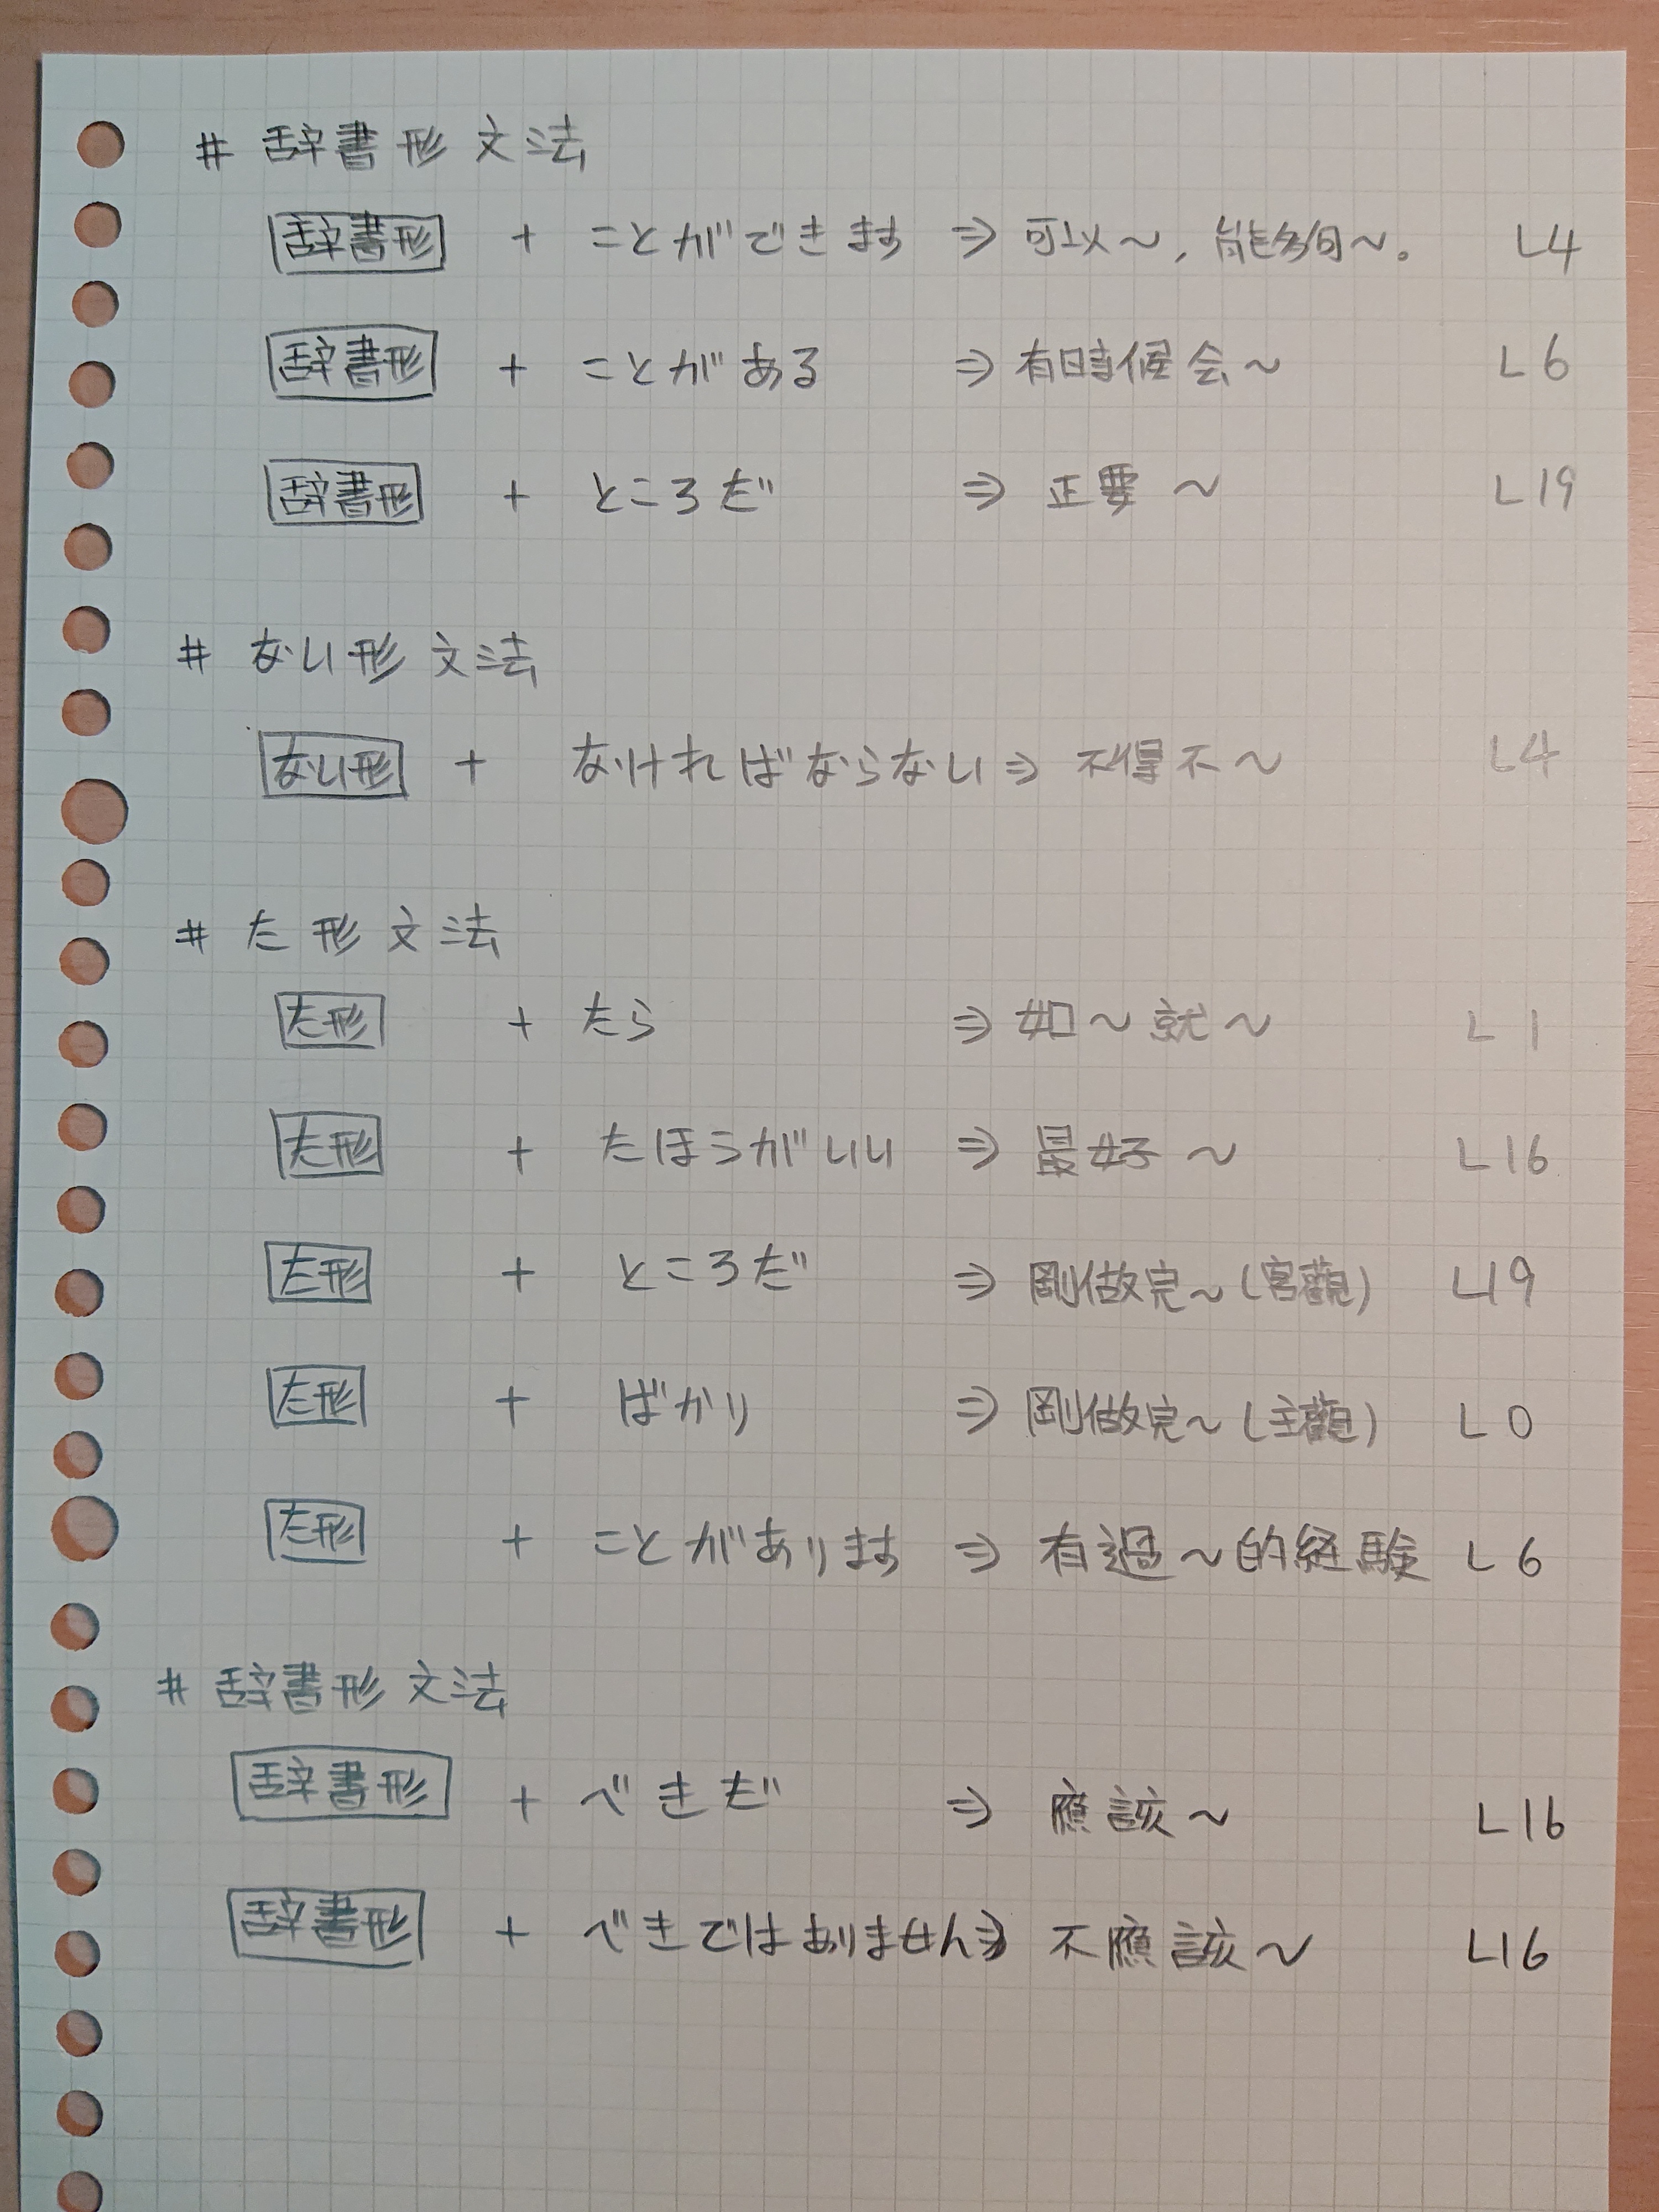 # 辞書形 文法
辞書形 + ことができます ⇒ 可以～, 能夠～。 L4
辞書形 + ことがある ⇒ 有時候会～ L6
辞書形 + ところだ ⇒ 正要～ L19
# ない形 文法
ない形 + なければならない ⇒ 不得不～ L4
# た形 文法
た形 + たら ⇒ 如～就～ L1
た形 + たほうがいい ⇒ 最好～ L16
た形 + ところだ ⇒ 剛做完～(客觀) L19
た形 + ばかり ⇒ 剛做完～(主觀) L0
た形 + ことがあります ⇒ 有過～的経験 L6
# 辞書形 文法
辞書形 + べきだ ⇒ 應該～ L16
辞書形 + べきではありません⇒ 不應該～ L16